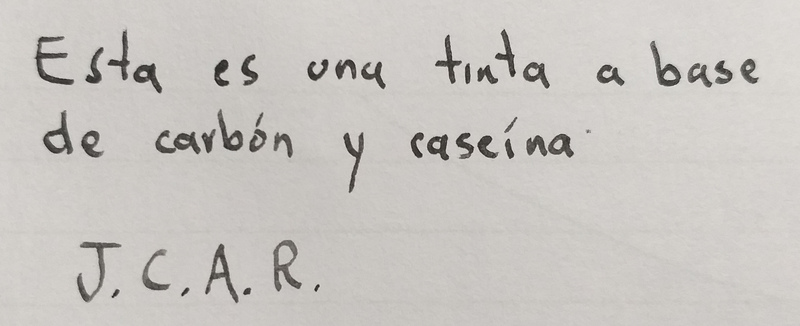 Esta es una tinta a base
de carbón y caseína
J.C.A.R.